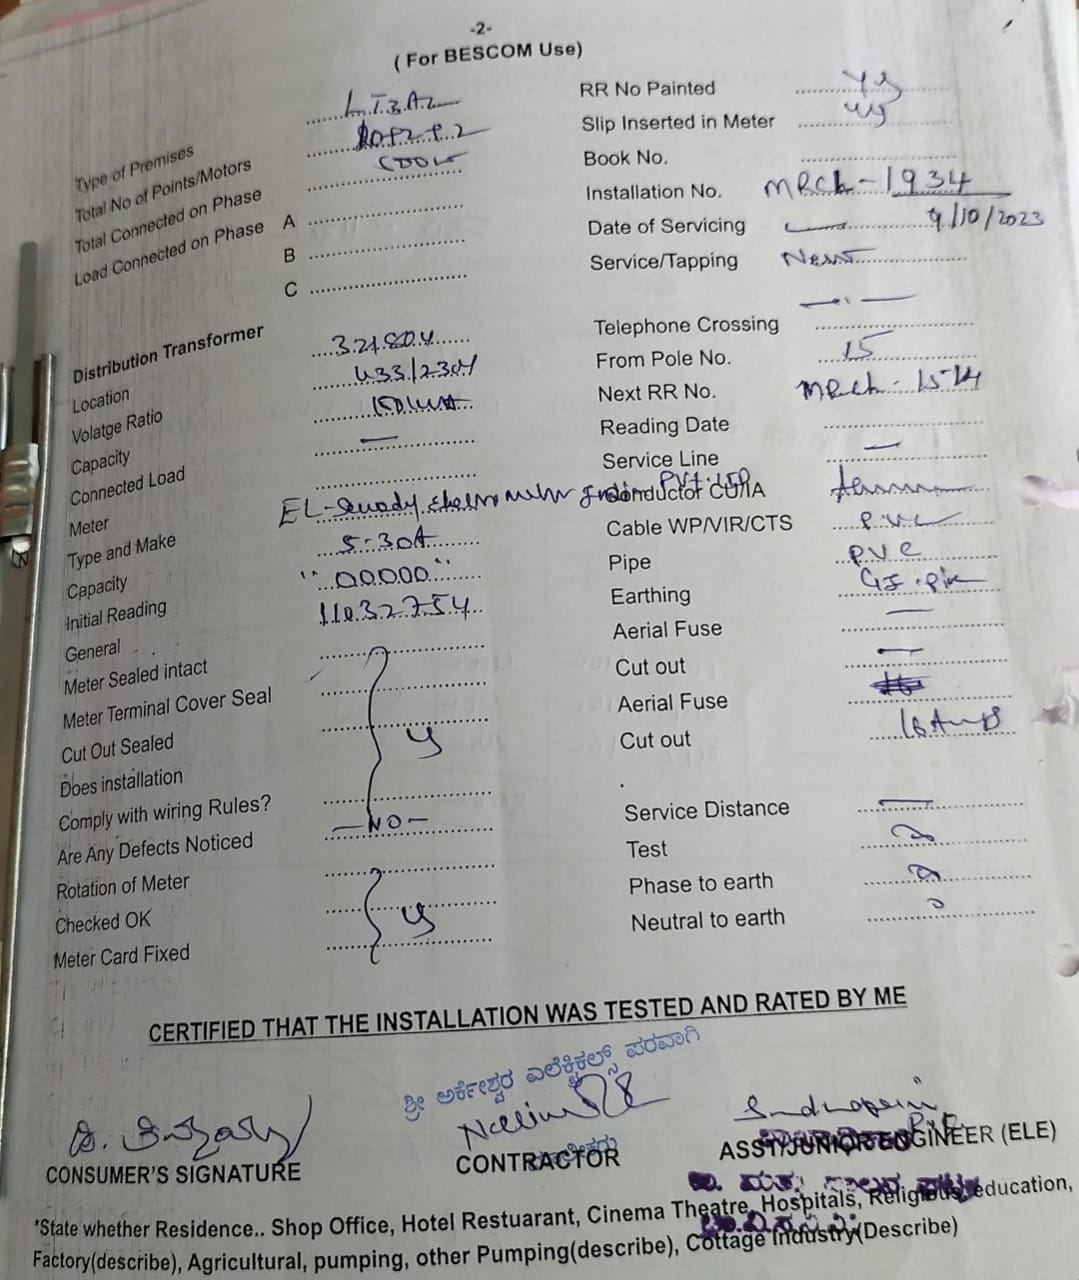 -2-
( For BESCOM Use)
Type of Premises L.T.3.A.2
Total No of Points/Motors
Total Connected on Phase
Load Connected on Phase A
B
C
Distribution Transformer
Location 3.21.80.4
Volatge Ratio 433/230V
Capacity
Connected Load —
Meter
Type and Make
Capacity 5-30A
Initial Reading "00000"
General 11032754
Meter Sealed intact
Meter Terminal Cover Seal
Cut Out Sealed
Does installation
Comply with wiring Rules?
Are Any Defects Noticed —NO—
Rotation of Meter
Checked OK
Meter Card Fixed
RR No Painted Yes
Slip Inserted in Meter Yes
Book No.
Installation No. MRCH-1934
Date of Servicing 9/10/2023
Service/Tapping New
Telephone Crossing
From Pole No. 15
Next RR No.
Reading Date
Service Line —
Conductor CU/IA
Cable WP/VIR/CTS P.V.C
Pipe P.V.C
Earthing
Aerial Fuse —
Cut out —
Aerial Fuse
Cut out 16 Amps
Service Distance —
Test
Phase to earth
Neutral to earth
CERTIFIED THAT THE INSTALLATION WAS TESTED AND RATED BY ME
ಶ್ರೀ ಅರ್ಕೇಶ್ವರ ಎಲೆಕ್ಟ್ರಿಕಲ್ಸ್ ಪರವಾಗಿ
CONSUMER'S SIGNATURE
CONTRACTOR
ASST/JUNIOR ENGINEER (ELE)
*State whether Residence.. Shop Office, Hotel Restuarant, Cinema Theatre, Hospitals, Religious education,
Factory(describe), Agricultural, pumping, other Pumping(describe), Cottage Industry(Describe)